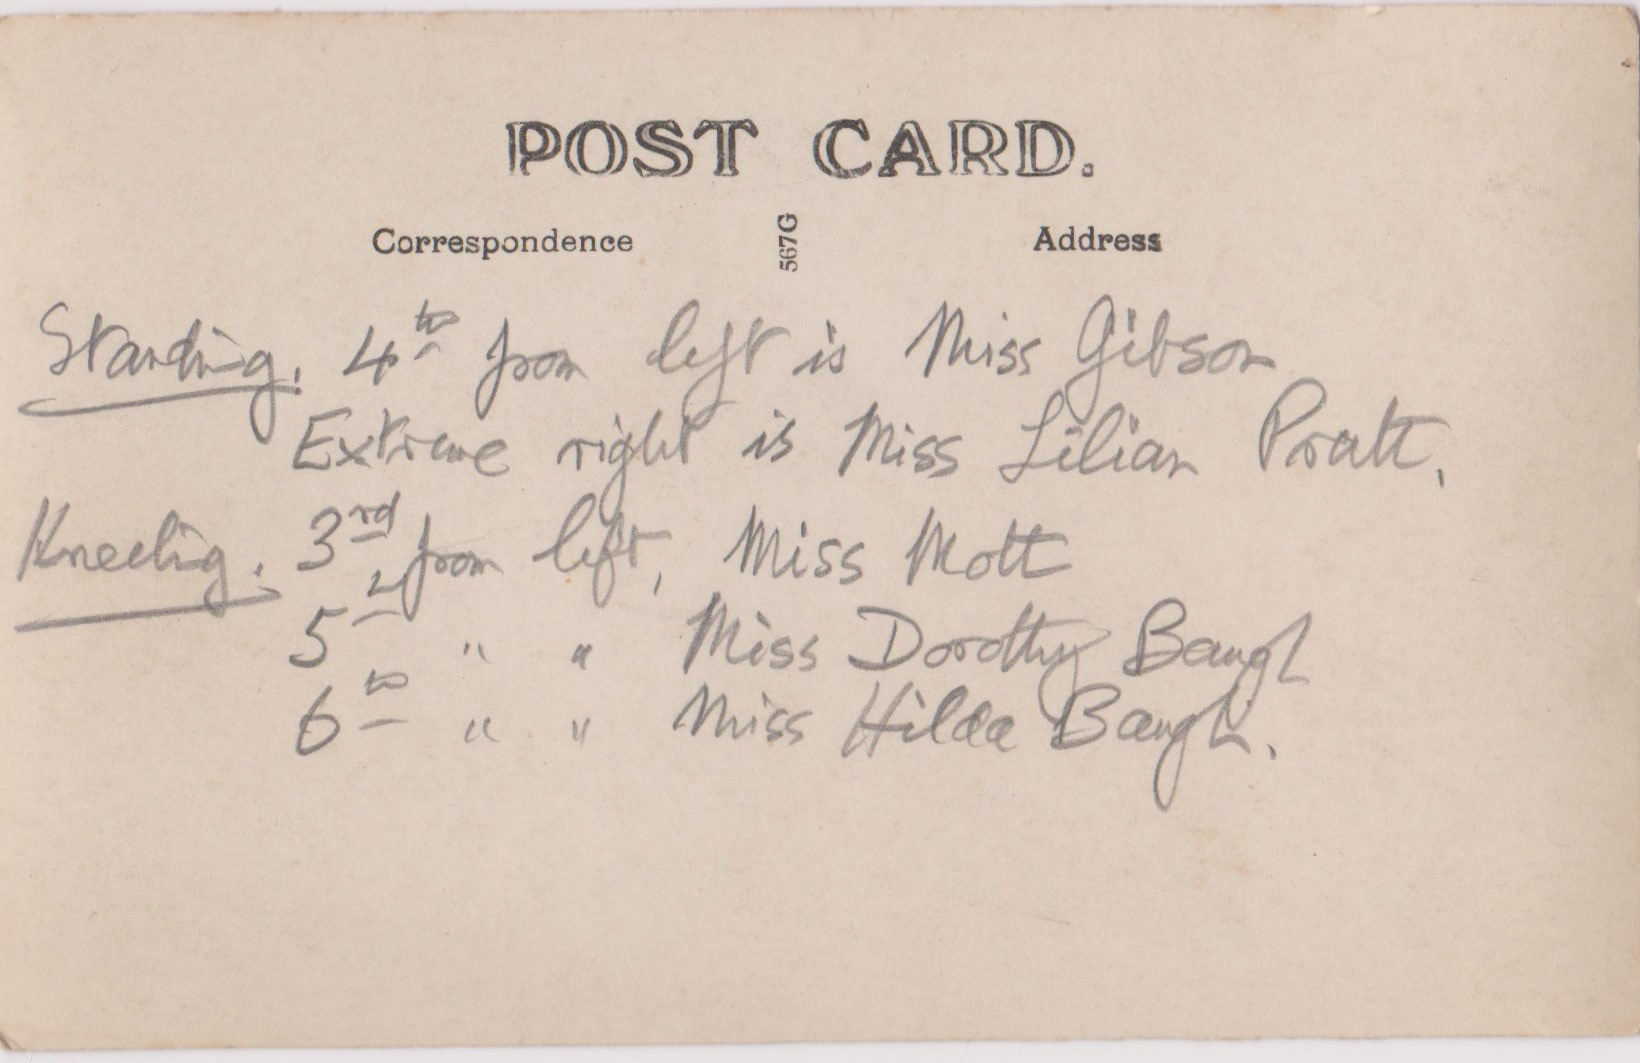 POST CARD.
Correspondence
567G
Address
Standing. 4th from left is Miss Gibson
Extreme right is Miss Lilian Pratt.
Kneeling. 3rd from left, Miss Mott
5th " " Miss Dorothy Baugh
6th " " Miss Hilda Baugh.